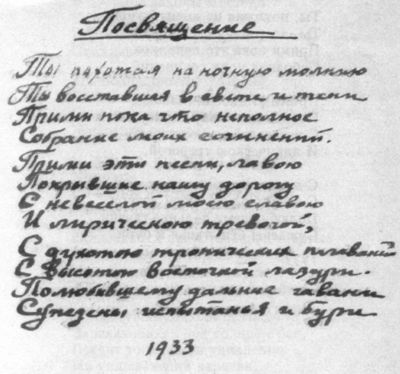 Посвящение
Ты похожая на ночную молнию
Ты восставшая в свете и тени
Прими пока что неполное
Собрание моих сочинений.
Прими эти песни, лавою
Покрывшие нашу дорогу
С невеселой моею славою
И лирическою тревогой,
С духотою тропических плаваний
С высотою восточной лазури.
Полюбившему дальние гавани
Суждены испытанья и бури
1933